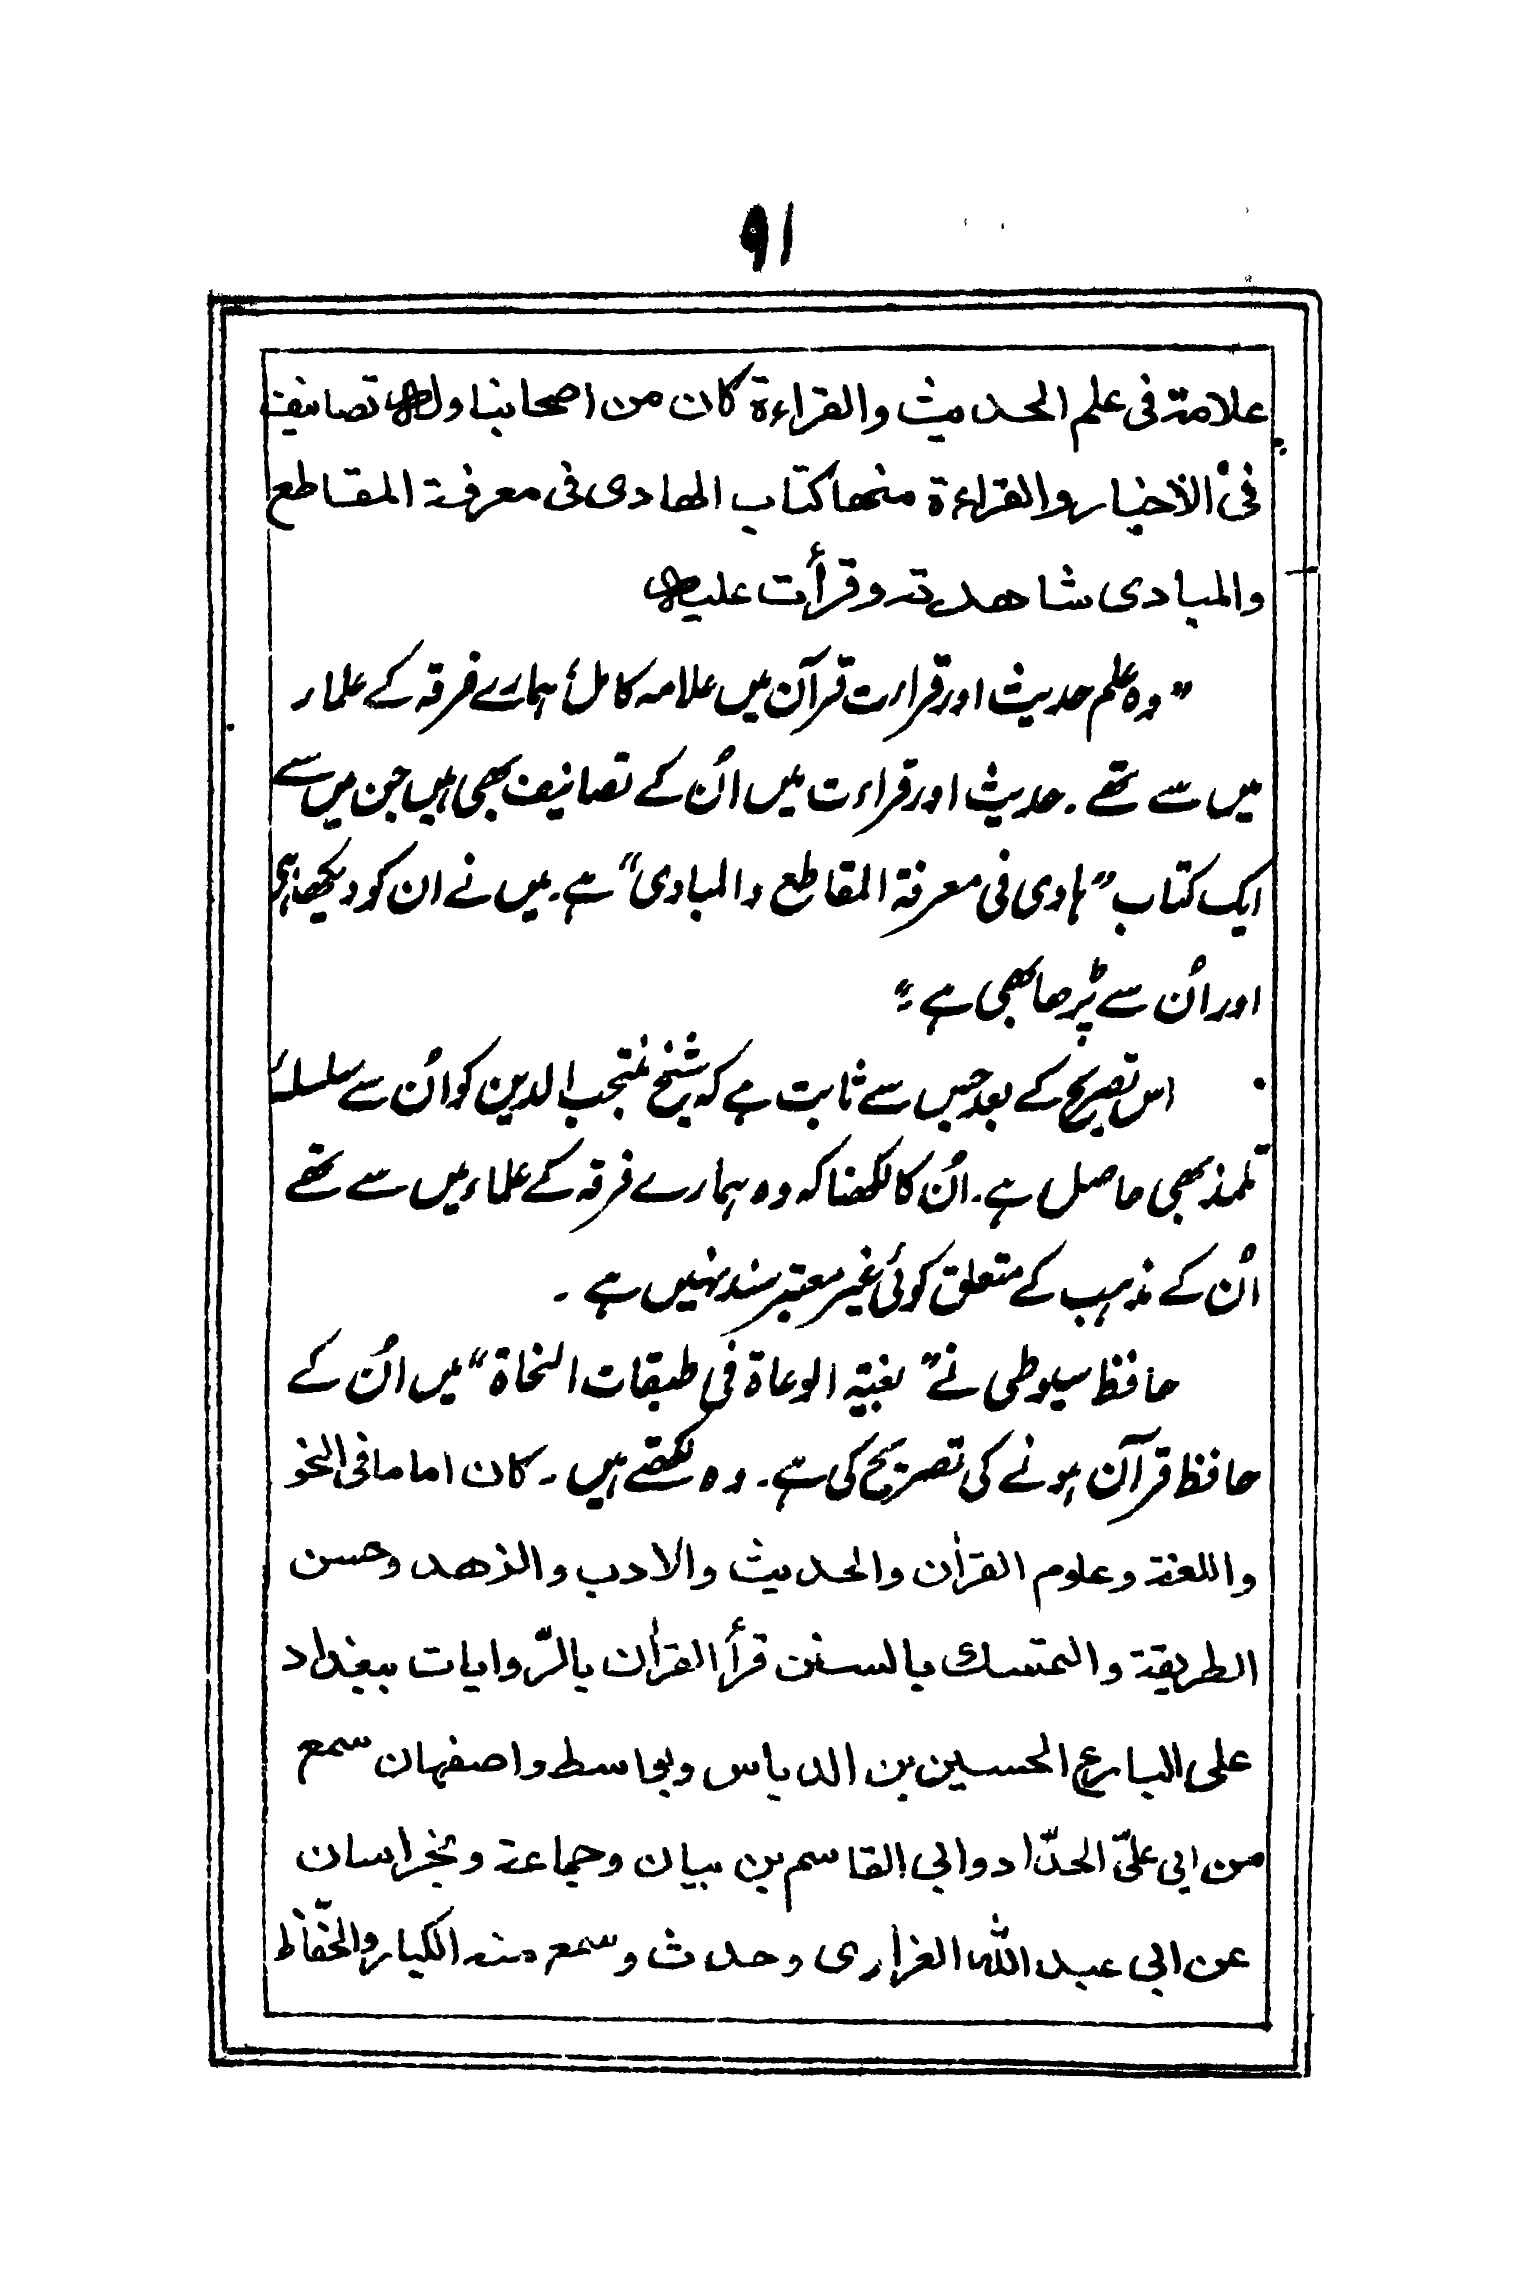 ۹۱
علامة فی علم الحدیث والقراءة کان من اصحابنا وله تصانیف
فی الاخبار والقراءة منها کتاب الهادی فی معرفة المقاطع
والمبادی شاهدته وقرأت علیه
”وہ علم حدیث اور قراءت قرآن میں علامہ کامل، ہمارے فرقہ کے علماء
میں سے تھے۔ حدیث اور قراءت میں اُن کے تصانیف بھی ہیں جن میں سے
ایک کتاب ”ہادی فی معرفۃ المقاطع والمبادی“ ہے۔ میں نے ان کو دیکھا بھی
اور اُن سے پڑھا بھی ہے۔“
اس تصریح کے بعد جس سے ثابت ہے کہ شیخ منتجب الدین کو اُن سے سلسلہٴ
تلمذ بھی حاصل ہے۔ اُن کا لکھنا کہ وہ ہمارے فرقہ کے علماء میں سے تھے
اُن کے مذہب کے متعلق کوئی غیر معتبر سند نہیں ہے ۔
حافظ سیوطی نے ”بغیۃ الوعاة فی طبقات النحاة“ میں اُن کے
حافظ قرآن ہونے کی تصریح کی ہے۔ وہ لکھتے ہیں ۔ کان اماما فی النحو
واللغة وعلوم القراٰن والحدیث والادب والزهد وحسن
الطریقة والتمسك بالسنن قرأ القراٰن بالرّوایات ببغداد
علی البارع الحسین بن الدباس وبواسط واصفهان سمع
من ابی علیّ الحدّاد وابی القاسم بن بیان وجماعة وبخراسان
عن ابی عبد الله الفراری وحدث وسمع منه الکبار والحفّاظ